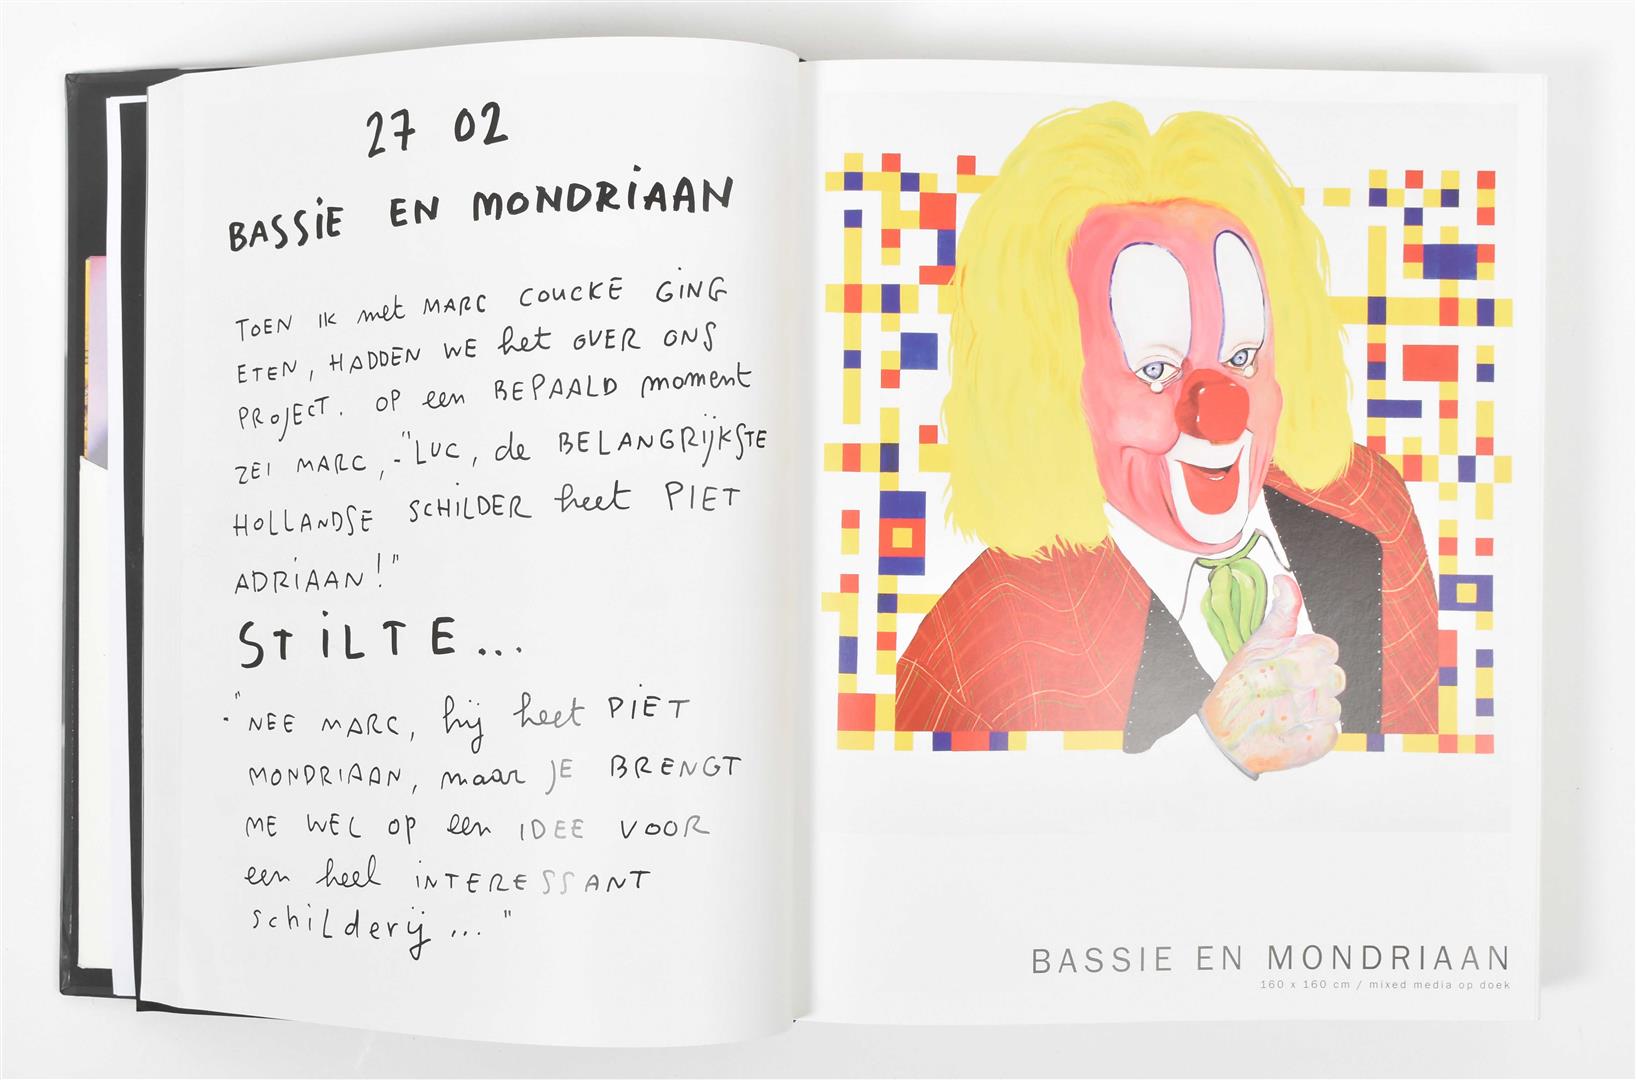 27 02
BASSiE EN MONDRiAAN
TOEN IK met MARC COUCKE GING
ETEN, HADDEN WE het OVER ONS
PROJECT. OP een BEPAALD moment
ZEI MARC, -"LUC, de BELANGRIJKSTE
HOLLANDSE SCHILDER heet PIET
ADRIAAN!"
STiLTE...
-"NEE MARC, hij heet PIET
MONDRIAAN, maar JE BRENGT
ME WEL OP een IDEE VOOR
een heel INTERESSANT
schilderij ..."
BASSIE EN MONDRIAAN
160 x 160 cm / mixed media op doek